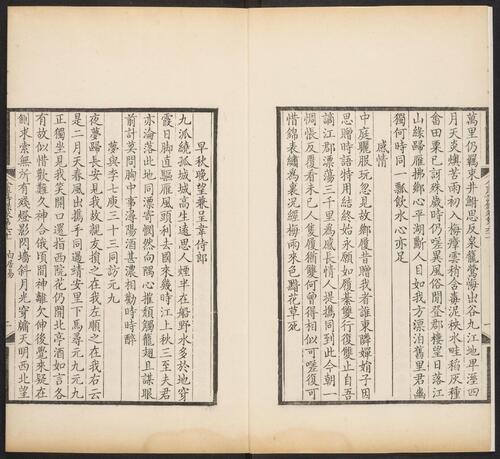 萬里仍羈束井鮒思反泉籠鶯悔出谷九江地卑溼四
月天炎燠苦雨初入梅瘴雲稍含毒泥秧水畦稻灰種
畬田粟已訝殊歲時仍嗟異風俗閒登郡樓望日落江
山綠歸雁拂鄉心平湖斷人目如我方漂泊舊里君幽
獨何時同一瓢飲水心亦足
感情
中庭曬服玩忽見故鄉履昔贈我者誰東鄰嬋娟子因
思贈時語特用結終始永願如履綦雙行復雙止自吾
謫江郡漂蕩三千里為感長情人提攜同到此今朝一
惆悵反覆看未已人隻履猶雙何曾得相似可嗟復可
惜錦表繡為裏況經梅雨來色黯花草死
早秋晚望兼呈韋侍郎
九派繞孤城城高生遠思人煙半在船野水多於地穿
霞日腳直驅雁風頭利去國來幾時江上秋三至夫君
亦淪落此地同漂寄憫然向隅心摧頹觸籠翅且謀眼
前計莫問胸中事潯陽酒甚濃相勸時時醉
夢與李七庾三十三同訪元九
夜夢歸長安見我故親友損之在我左順之在我右云
是二月天春風出攜手同過靖安里下馬尋元九元九
正獨坐見我笑開口還指西院花仍開北亭酒如言各
有故似惜歡難久神合俄頃間神離欠伸後覺來疑在
側求索無所有殘燈影閃牆斜月光穿牖天明西北望